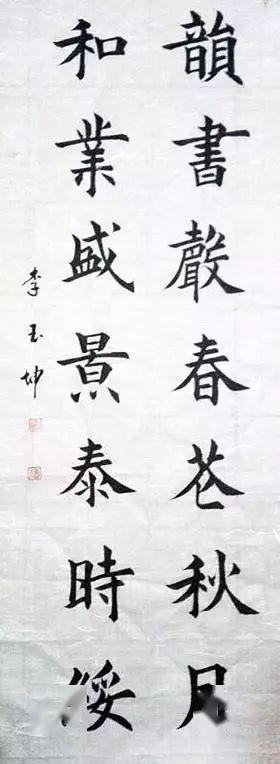 韻書聲春花秋月
和業盛景泰時綏
李玉坤